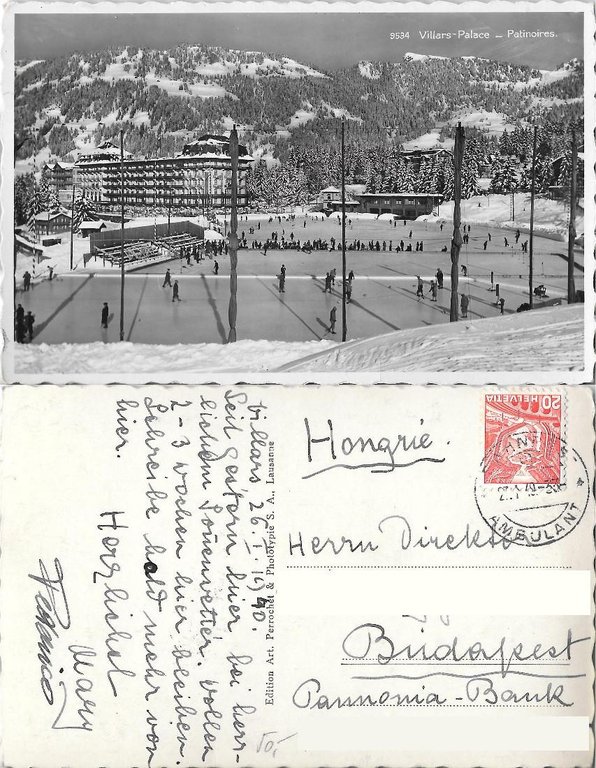 9534 Villars-Palace – Patinoires.
Villars 26.I.1940.
Seit gestern hier bei herr-
lichem Sonenwetter. Wollen
2-3 Wochen hier bleiben.
Schreibe bald mehr von
hier.
Herzlichst
Mary
Edition Art. Perrochet & Phototypie S. A., Lausanne
Hongrie.
HELVETIA
20
AMBULANT
Herrn Direktor
Budapest
Pannonia-Bank